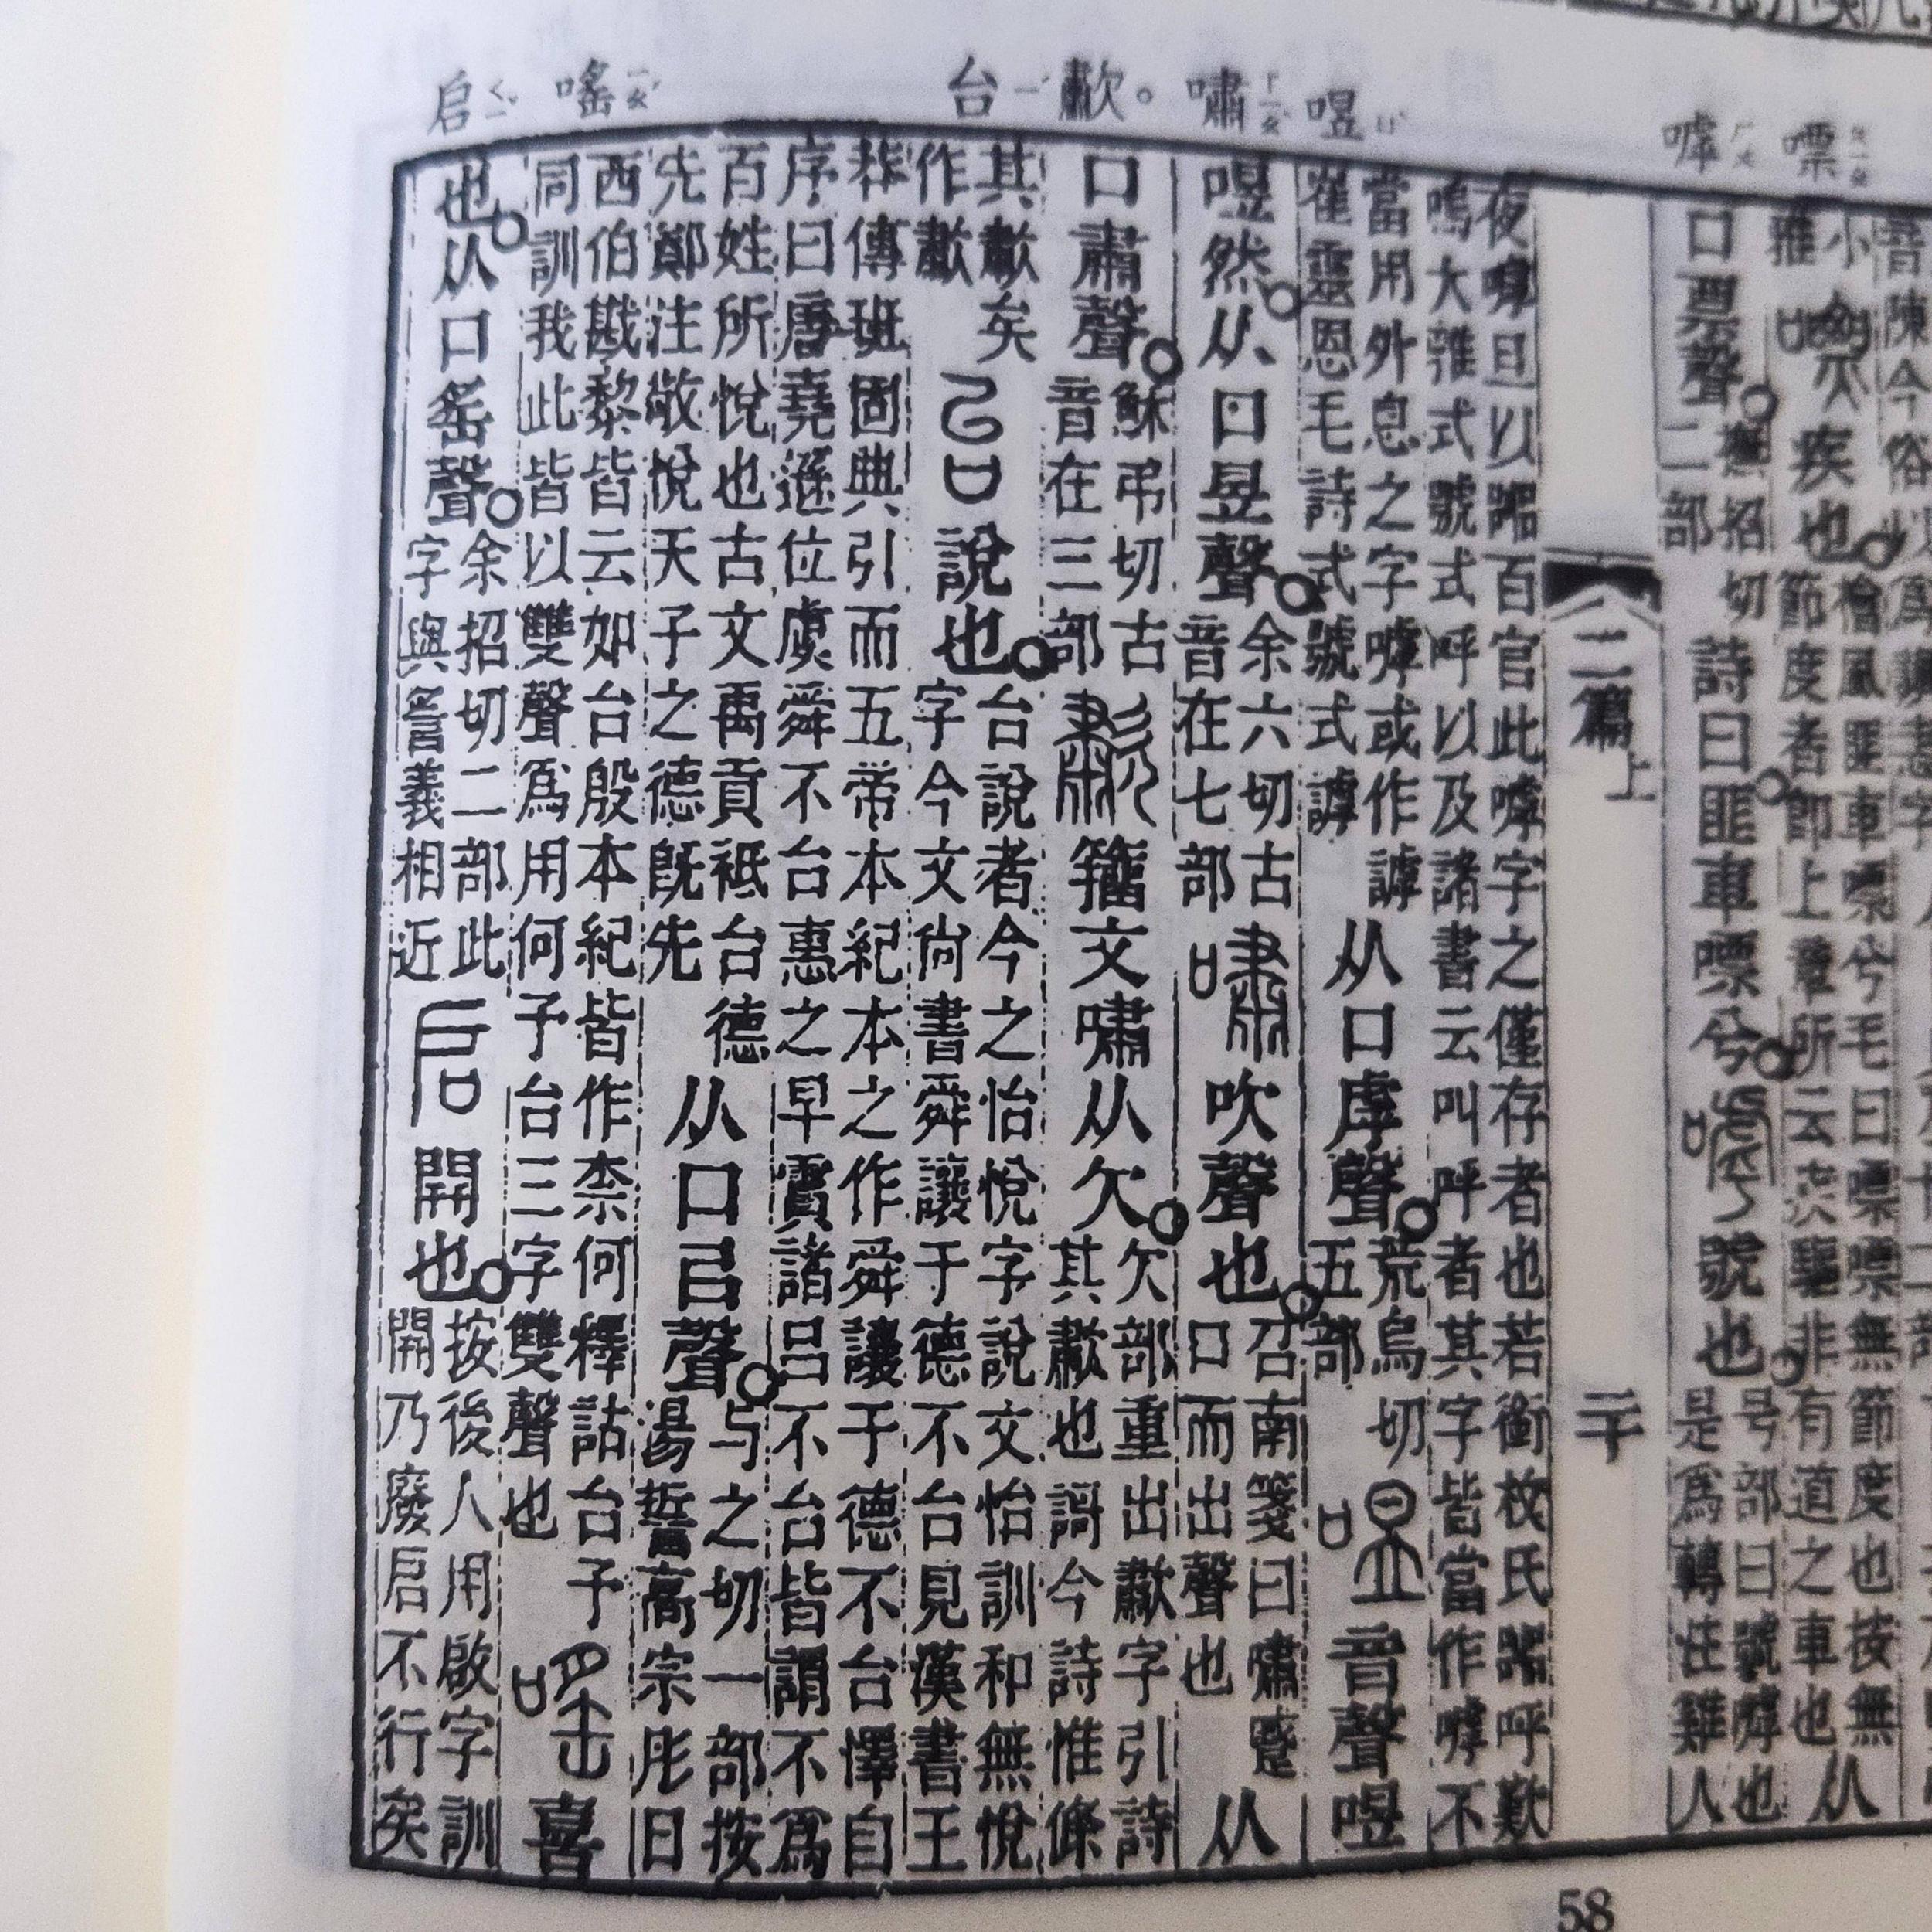 嘌ㄆㄧㄠ 嘑ㄏㄨ 喅ㄩˋ 嘯ㄒㄧㄠˋ。歗 台ㄧˊ 嗂ㄧㄠˊ 启ㄑㄧˇ
疾也。檜風匪車嘌兮毛曰嘌嘌無節度也按無節度者卽上章所云 驅非有道之車也从
口票聲。撫招切二部詩曰匪車嘌兮。嘑號也。号部曰號嘑也是爲轉注雞人
二篇上 二十
夜嘑旦以嘂百官此嘑字之僅存者也若衘枚氏嘂呼歎鳴大雅式號式呼以及諸書云叫呼者其字皆當作嘑不
當用外息之字嘑或作謼崔靈恩毛詩式號式謼从口虖聲。荒烏切五部喅音聲喅
喅然。从口昱聲。余六切古音在七部嘯吹聲也。召南箋曰嘯蹙口而出聲也从
口肅聲。穌弔切古音在三部歗籒文嘯从欠。欠部重出歗字引詩其歗也謌今詩惟條
其歗矣作歗台說也。台說者今之怡悅字說文怡訓和無悅字今文尙書舜讓于德不台見漢書王
莽傳班固典引而五帝本紀本之作舜讓于德不台懌自序曰唐堯遜位虞舜不台惠之早霣諸呂不台皆謂不爲
百姓所悅也古文禹貢祗台德先鄭注敬悅天子之德旣先从口㠯聲。与之切一部按湯誓高宗肜日
西伯戡黎皆云如台殷本紀皆作柰何釋詁台予同訓我此皆以雙聲爲用何予台三字雙聲也嗂喜
也。从口䍃聲。余招切二部此字與䚻義相近启開也。按後人用啟字訓開乃廢启不行矣
58